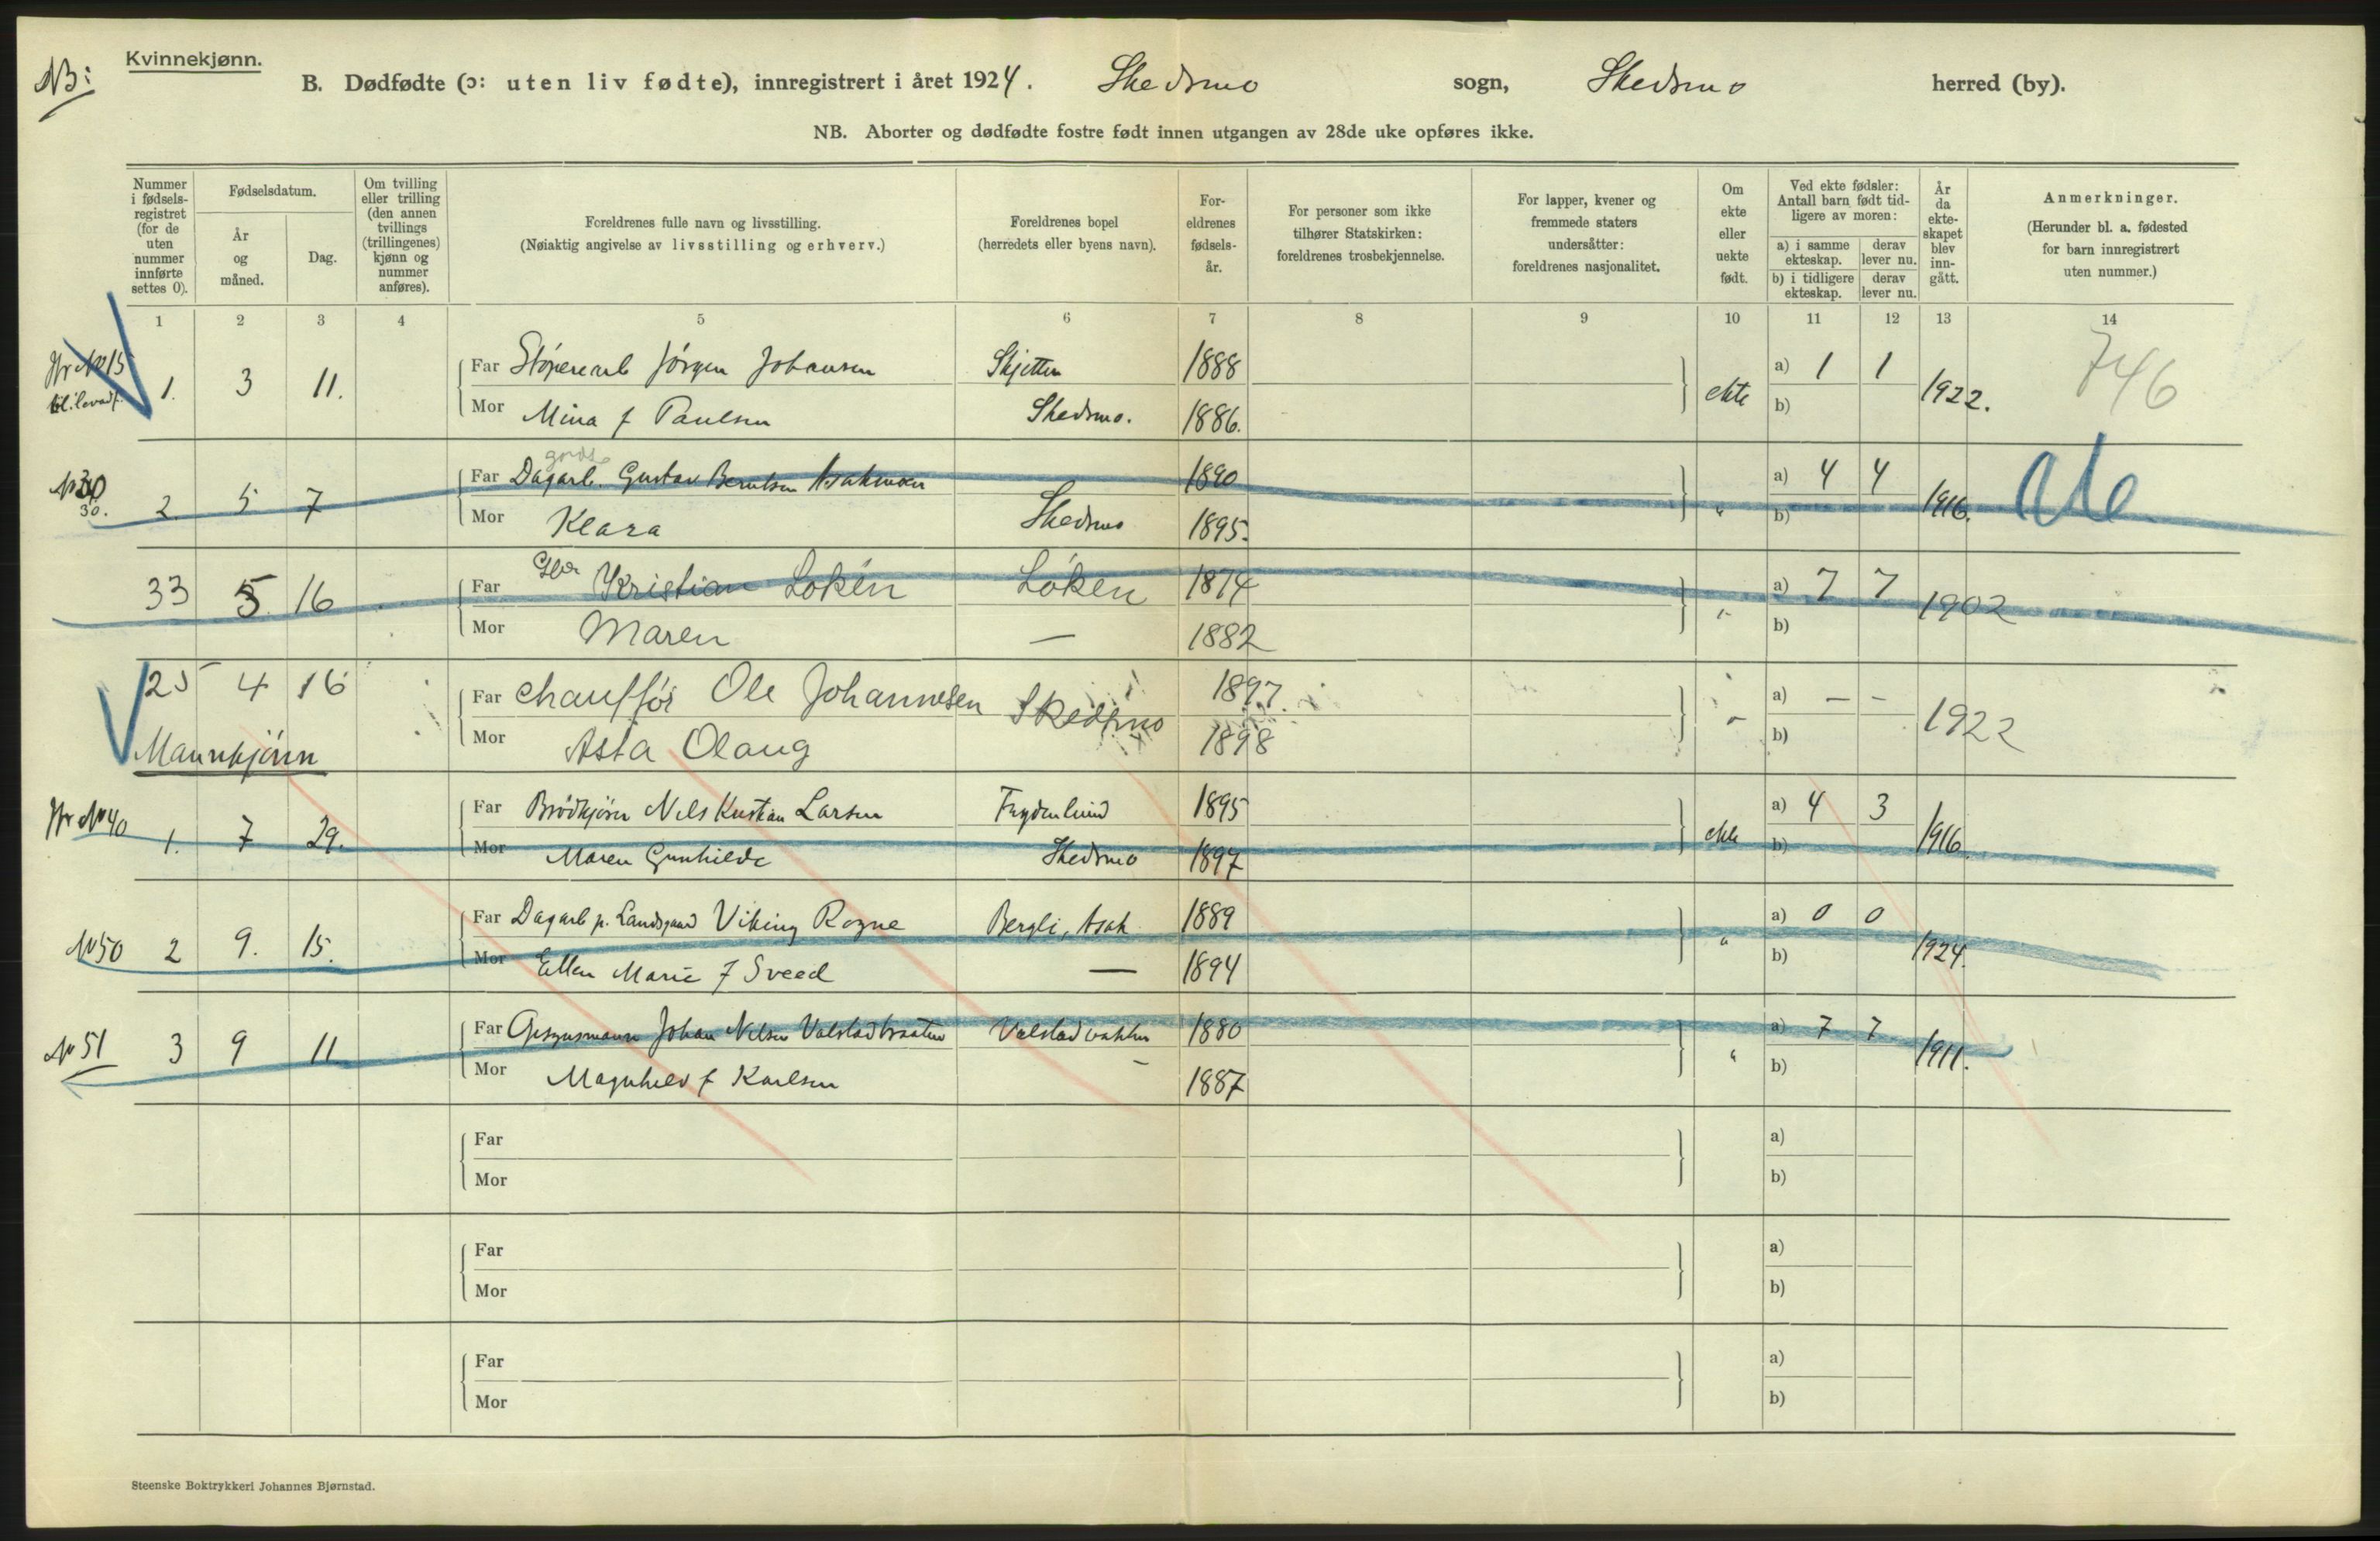 NB:
Kvinnekjønn.
B. Dødfødte (ɔ: uten liv fødte), innregistrert i året 1924. Skedsmo sogn, Skedsmo herred (by).
NB. Aborter og dødfødte fostre født innen utgangen av 28de uke opføres ikke.
Nummer i fødsels-registret (for de uten nummer innførte settes 0).
Fødselsdatum.
År og måned.
Dag.
Om tvilling eller trilling (den annen tvillings (trillingenes) kjønn og nummer anføres).
Foreldrenes fulle navn og livsstilling.
(Nøiaktig angivelse av livsstilling og erhverv.)
Foreldrenes bopel
(herredets eller byens navn).
For-eldrenes fødsels-år.
For personer som ikke tilhører Statskirken: foreldrenes trosbekjennelse.
For lapper, kvener og fremmede staters undersåtter: foreldrenes nasjonalitet.
Om ekte eller uekte født.
Ved ekte fødsler: Antall barn født tid-ligere av moren:
a) i samme ekteskap. derav lever nu.
b) i tidligere ekteskap. derav lever nu.
År da ekte-skapet blev inn-gått.
Anmerkninger.
(Herunder bl. a. fødested for barn innregistrert uten nummer.)
1 2 3 4 5 6 7 8 9 10 11 12 13 14
No 15
1. 3 11. Far Jørgen Johansen Skjetten 1888 ekte a) 1 1 1922. 746
Mor Mina f Paulsen Skedsmo. 1886. b)
30.
2 5 7 Far Dagarb. Gustav Berntsen 1890 " a) 4 4 1916.
Mor Klara Skedsmo 1895. b)
33 5 16 Far Kristian Løken Løken 1874 " a) 7 7 1902
Mor Maren — 1882 b)
25 4 16 Far Chauffør Ole Johannesen Skedsmo 1897. " a) – – 1922
Mor Asta Olaug 1898 b)
Mannkjønn
No 40
1. 7 29. Far Brødkjører Nils Kristian Larsen Frydenlund 1895 ekte a) 4 3 1916.
Mor Maren Gunhilde Skedsmo 1897 b)
No 50 2 9. 15. Far Dagarb p. Landsgaard Viking Rogne Bergli, Asak 1889 " a) 0 0 1924.
Mor Ellen Marie f Sveed — 1894 b)
No 51 3 9 11 Far Johan Nilsen Valstadbraaten Valstadbakken 1880 " a) 7 7 1911.
Mor Magnhild f Karlsen – 1887 b)
Far a)
Mor b)
Far a)
Mor b)
Far a)
Mor b)
Steenske Boktrykkeri Johannes Bjørnstad.